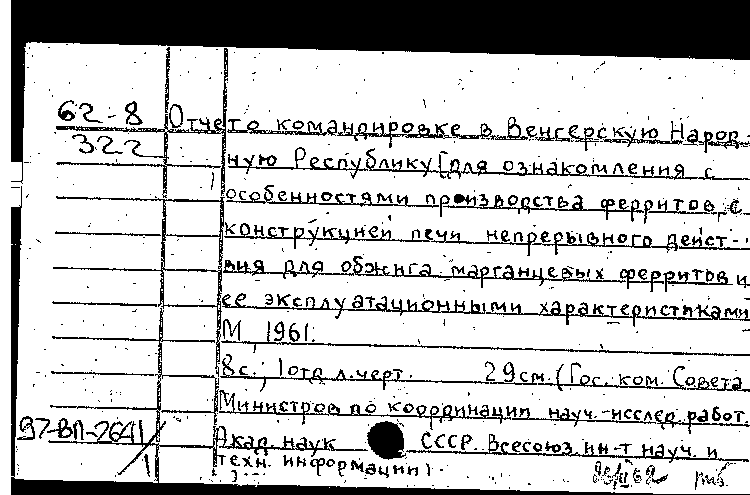 62-8
322
Отчет о командировке в Венгерскую Народ-
ную Республику [для ознакомления с
особенностями производства ферритов, с
конструкцией печи непрерывного дейст-
вия для обжига марганцевых ферритов и
ее эксплуатационными характеристиками
М., 1961.
8 с.; 1 отд. л. черт. 29 см. (Гос. ком. Совета
Министров по координации науч.-исслед. работ.
Акад. наук СССР. Всесоюз. ин-т науч. и
техн. информации).
97-ВП-2641/
1